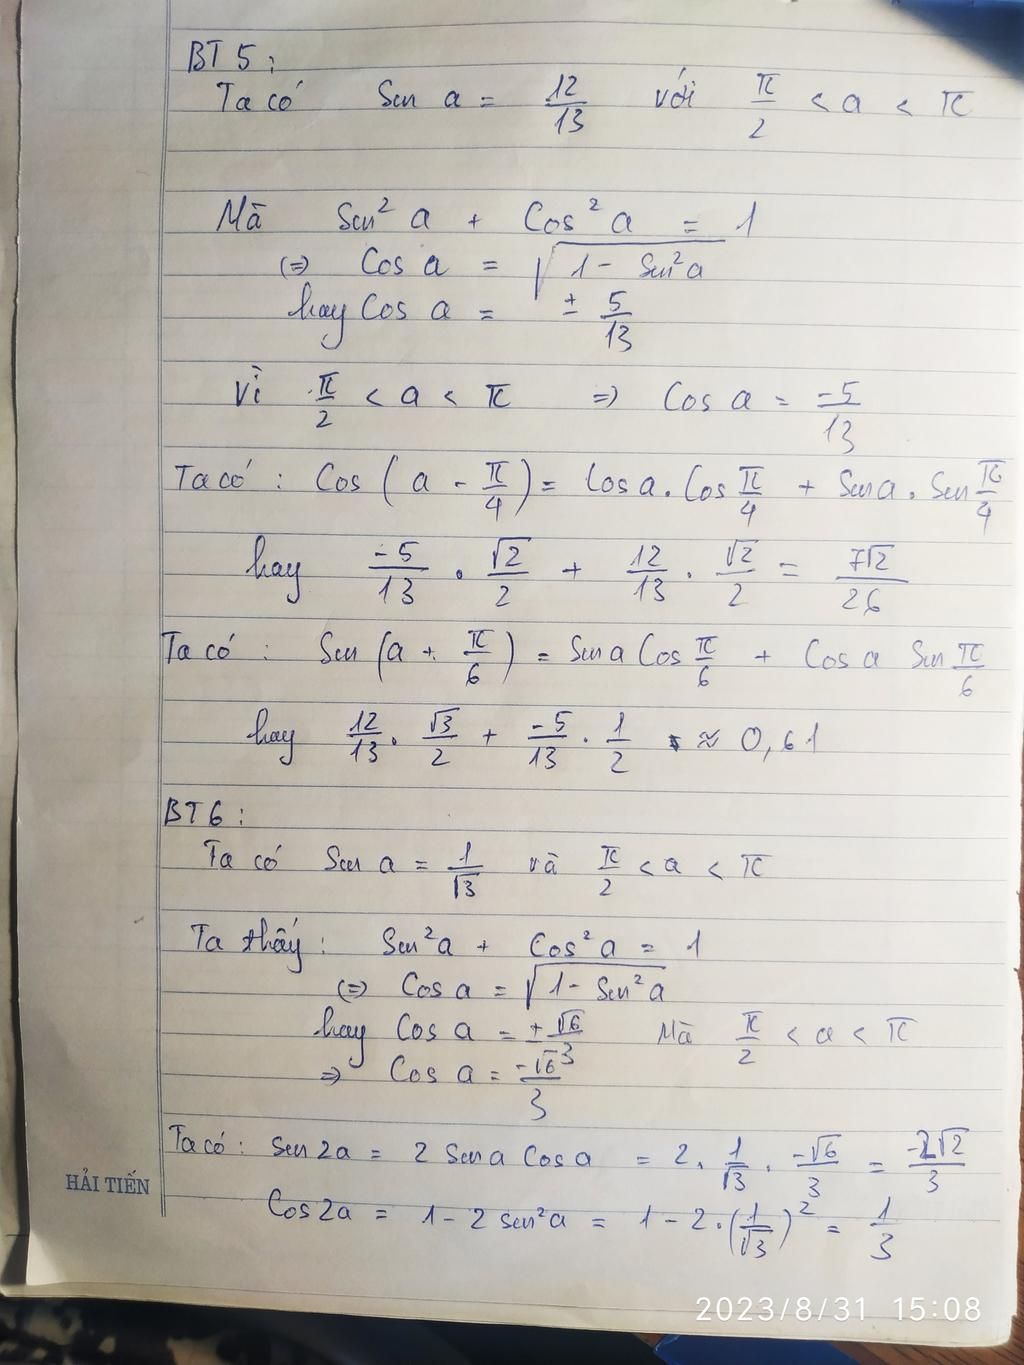 BT 5:
Ta có Sin a = 12/13 với π/2 < a < π
Mà Sin² a + Cos² a = 1
(=) Cos a = √(1 - Sin²a)
hay Cos a = ± 5/13
Vì π/2 < a < π => Cos a = -5/13
Ta có: Cos (a - π/4) = Cos a . Cos π/4 + Sin a . Sin π/4
hay -5/13 . √2/2 + 12/13 . √2/2 = 7√2/26
Ta có: Sin (a + π/6) = Sin a Cos π/6 + Cos a Sin π/6
hay 12/13 . √3/2 + -5/13 . 1/2 ≈ 0,61
BT 6:
Ta có Sin a = 1/√3 và π/2 < a < π
Ta thấy: Sin²a + Cos²a = 1
(=) Cos a = √(1 - Sin²a)
hay Cos a = ±√6/3 Mà π/2 < a < π
=> Cos a = -√6/3
Ta có: Sin 2a = 2 Sin a Cos a = 2 . 1/√3 . -√6/3 = -2√2/3
Cos 2a = 1 - 2 sin²a = 1 - 2 . (1/√3)² = 1/3
HẢI TIẾN
2023/8/31 15:08